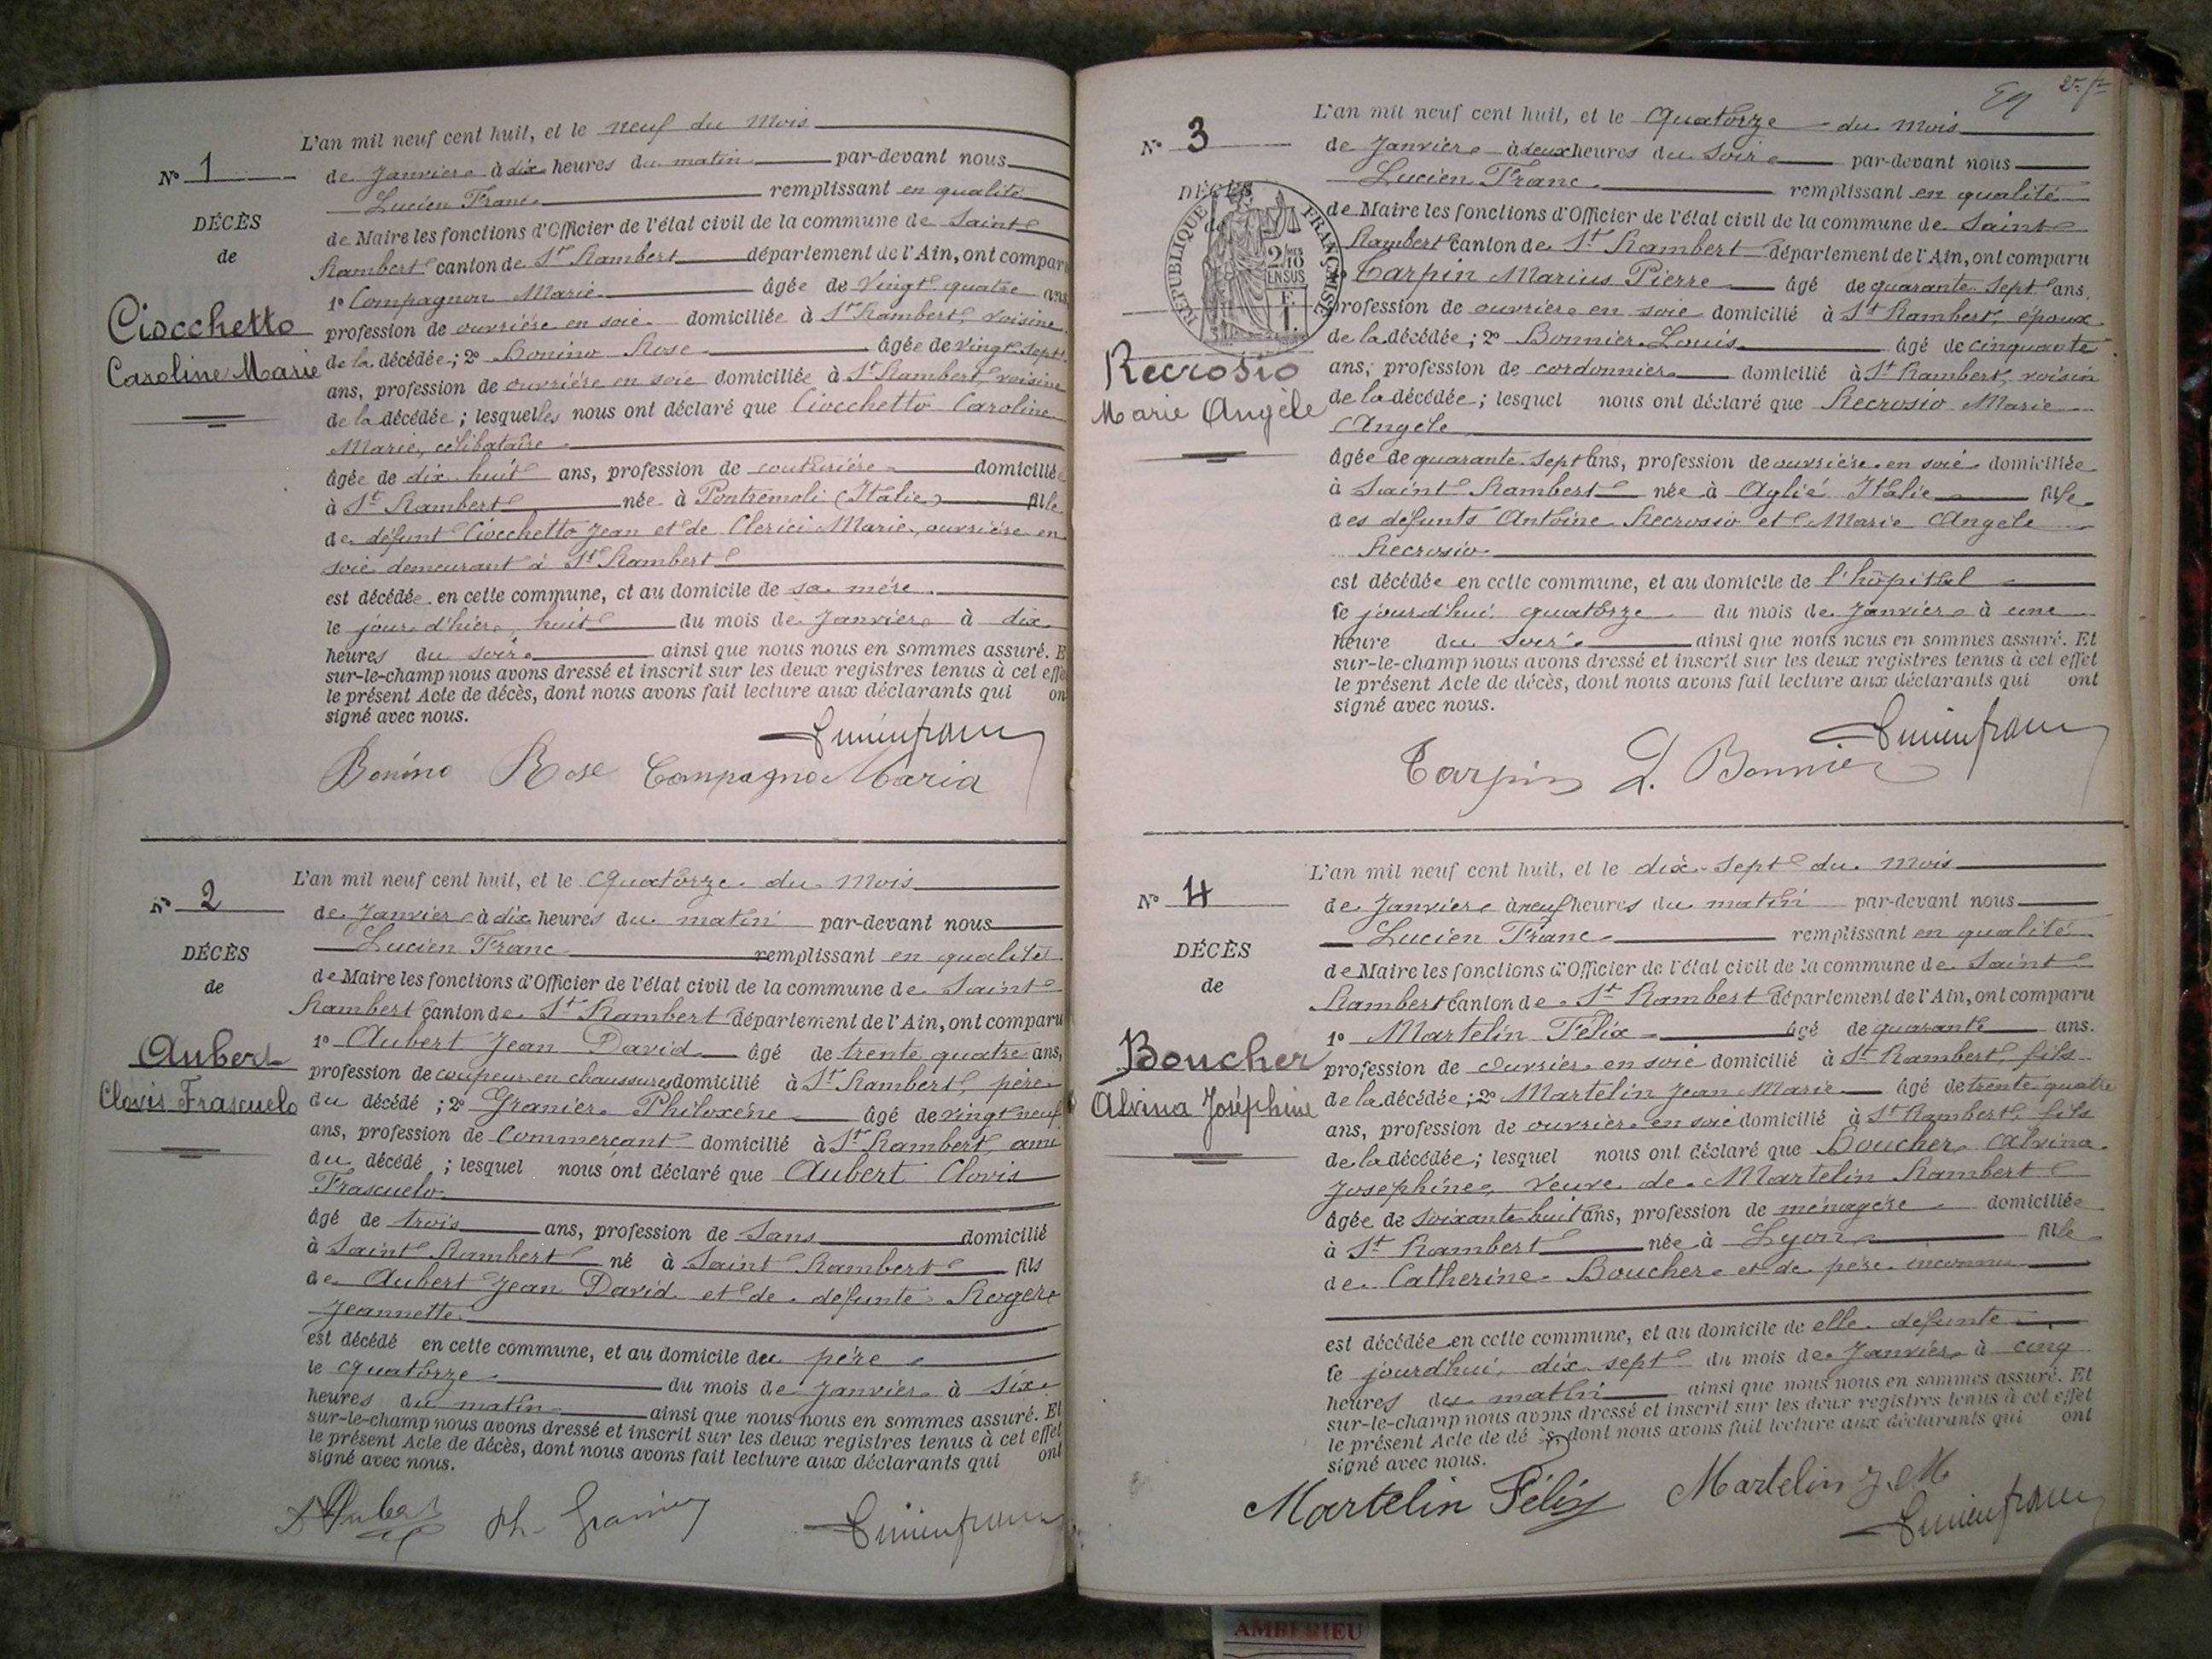 L'an mil neuf cent huit, et le neuf du mois
N° 1
de Janvier à dix heures du matin par-devant nous
Lucien Franc remplissant en qualité
DÉCÈS
de Maire les fonctions d'Officier de l'état civil de la commune de Saint
de
Rambert canton de St Rambert département de l'Ain, ont comparu
1° Compagnon Marie âgée de vingt quatre ans
Ciocchetto
profession de ouvrière en soie domiciliée à St Rambert, voisine
Caroline Marie
de la décédée ; 2° Bonino Rose âgée de vingt sept
ans, profession de ouvrière en soie domiciliée à St Rambert, voisine
de la décédée ; lesquelles nous ont déclaré que Ciocchetto Caroline
Marie, célibataire
âgée de dix huit ans, profession de couturière domiciliée
à St Rambert née à Pontremoli (Italie) fille
de défunt Ciocchetto Jean et de Clerici Marie, ouvrière en
soie demeurant à St Rambert
est décédée en cette commune, et au domicile de sa mère
le jour d'hier, huit du mois de Janvier à dix
heures du soir ainsi que nous nous en sommes assuré. E
sur-le-champ nous avons dressé et inscrit sur les deux registres tenus à cet effe
le présent Acte de décès, dont nous avons fait lecture aux déclarants qui on
signé avec nous.
Lucien Franc
Bonino Rose Compagno Maria
L'an mil neuf cent huit, et le quatorze du mois
N° 2
de Janvier à dix heures du matin par-devant nous
Lucien Franc remplissant en qualité
DÉCÈS
de Maire les fonctions d'Officier de l'état civil de la commune de Saint
de
Rambert canton de St Rambert département de l'Ain, ont comparu
1° Aubert Jean David âgé de trente quatre ans,
Aubert
profession de coupeur en chaussures domicilié à St Rambert, père
Clovis Frascuelo
du décédé ; 2° Granier Philoxène âgé de vingt neuf
ans, profession de commerçant domicilié à St Rambert, ami
du décédé ; lesquel nous ont déclaré que Aubert Clovis
Frascuelo
âgé de trois ans, profession de sans domicilié
à Saint Rambert né à Saint Rambert fils
de Aubert Jean David et de défunte Roger
Jeannette
est décédé en cette commune, et au domicile du père
le quatorze du mois de Janvier à six
heures du matin ainsi que nous nous en sommes assuré. Et
sur-le-champ nous avons dressé et inscrit sur les deux registres tenus à cet effet
le présent Acte de décès, dont nous avons fait lecture aux déclarants qui ont
signé avec nous.
Aubert Ph. Granier Lucien Franc
2e ft
L'an mil neuf cent huit, et le quatorze du mois
N° 3
de Janvier à deux heures du soir par-devant nous
Lucien Franc remplissant en qualité
DÉCÈS
RÉPUBLIQUE FRANÇAISE
2/10 EN SUS
de Maire les fonctions d'Officier de l'état civil de la commune de Saint
Rambert canton de St Rambert département de l'Ain, ont comparu
1° Tarpin Marius Pierre âgé de quarante sept ans,
profession de ouvrier en soie domicilié à St Rambert, époux
de la décédée ; 2° Bonnier Louis âgé de cinquante
Recrosio
ans, profession de cordonnier domicilié à St Rambert, voisin
Marie Angèle
de la décédée ; lesquel nous ont déclaré que Recrosio Marie
Angèle
âgée de quarante sept ans, profession de ouvrière en soie domiciliée
à Saint Rambert née à Aglié Italie fille
des défunts Antoine Recrosio et Marie Angèle
Recrosio
est décédée en cette commune, et au domicile de l'hôpital
le jourd'hui quatorze du mois de Janvier à une
heure du soir ainsi que nous nous en sommes assuré. Et
sur-le-champ nous avons dressé et inscrit sur les deux registres tenus à cet effet
le présent Acte de décès, dont nous avons fait lecture aux déclarants qui ont
signé avec nous.
Lucien Franc
Tarpin L. Bonnier
L'an mil neuf cent huit, et le dix-sept du mois
N° 4
de Janvier à neuf heures du matin par-devant nous
Lucien Franc remplissant en qualité
DÉCÈS
de Maire les fonctions d'Officier de l'état civil de la commune de Saint
de
Rambert canton de St Rambert département de l'Ain, ont comparu
1° Martelin Félix âgé de quarante ans.
Boucher
profession de ouvrier en soie domicilié à St Rambert, fils
Alvina Joséphine
de la décédée ; 2° Martelin Jean Marie âgé de trente quatre
ans, profession de ouvrier en soie domicilié à St Rambert, fils
de la décédée ; lesquel nous ont déclaré que Boucher Alvina
Joséphine, veuve de Martelin Rambert
âgée de soixante huit ans, profession de ménagère domiciliée
à St Rambert née à Lyon fille
de Catherine Boucher et de père inconnu
est décédée en cette commune, et au domicile de elle défunte
le jourd'hui, dix sept du mois de Janvier à cinq
heures du matin ainsi que nous nous en sommes assuré. Et
sur-le-champ nous avons dressé et inscrit sur les deux registres tenus à cet effet
le présent Acte de décès, dont nous avons fait lecture aux déclarants qui ont
signé avec nous.
Martelin Félix Martelin J. M
Lucien Franc
AMBERIEU